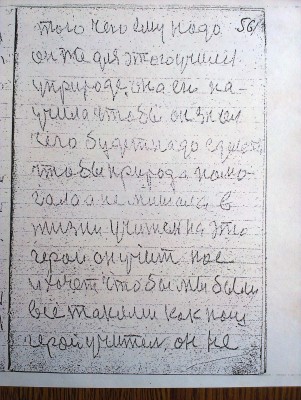 того чего ему надо 56
он же для этого учился
у природе, она ей на-
учила чтобы он знал
чего будет надо сделать
чтобы природа помо-
гала а не мешала в
жизни учител на это
герой он учит нас
и хочет что бы мы были
все такими как наш
герой учител. он не